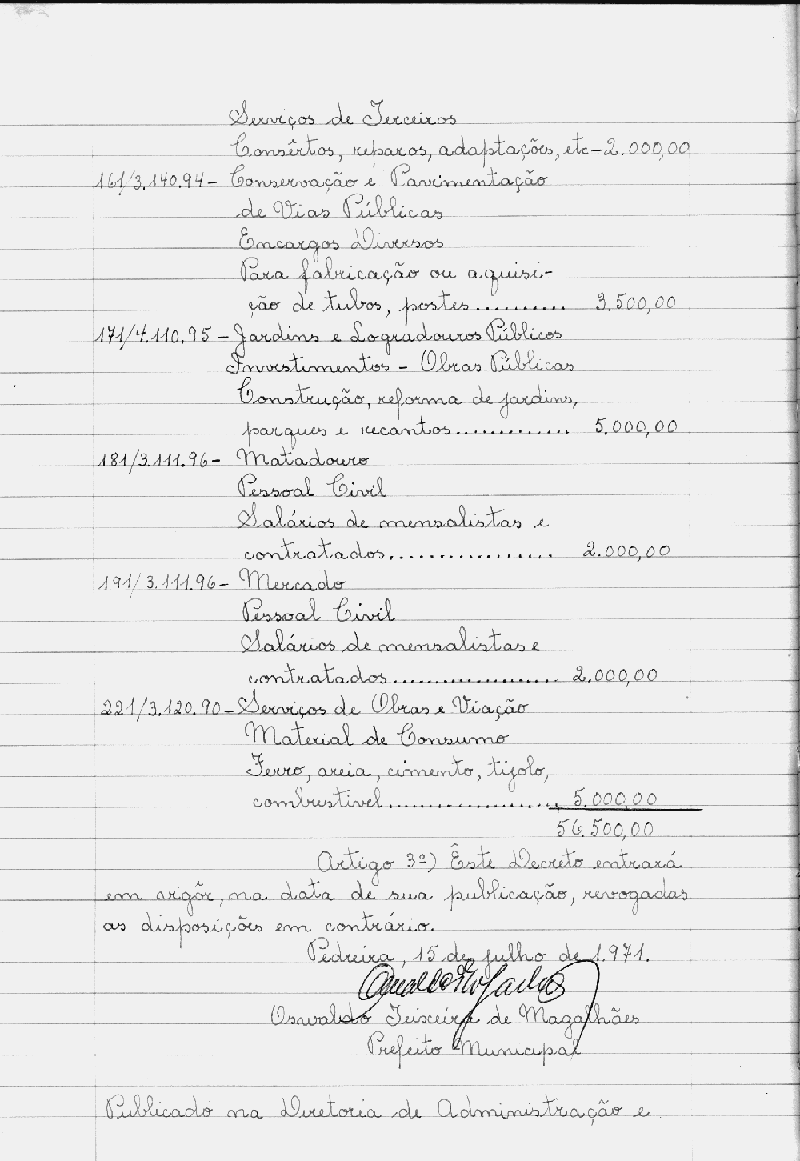 Serviços de Terceiros
Consêrtos, reparos, adaptações, etc - 2.000,00
161/3.140.94 - Conservação e Pavimentação
de Vias Públicas
Encargos Diversos
Para fabricação ou aquisi-
ção de tubos, postes .......... 3.500,00
171/4.110.95 - Jardins e Logradouros Públicos
Investimentos - Obras Públicas
Construção, reforma de jardins,
parques e recantos ............. 5.000,00
181/3.111.96 - Matadouro
Pessoal Civil
Salários de mensalistas e
contratados .................. 2.000,00
191/3.111.96 - Mercado
Pessoal Civil
Salários de mensalistas e
contratados .................. 2.000,00
221/3.120.90 - Serviços de Obras e Viação
Material de Consumo
Ferro, areia, cimento, tijolo,
combustivel .................. 5.000,00
56.500,00
Artigo 3º) Êste Decreto entrará
em vigôr, na data de sua publicação, revogadas
as disposições em contrário.
Pedreira, 15 de julho de 1.971.
Oswaldo Teixeira de Magalhães
Prefeito Municipal
Publicado na Diretoria de Administração e